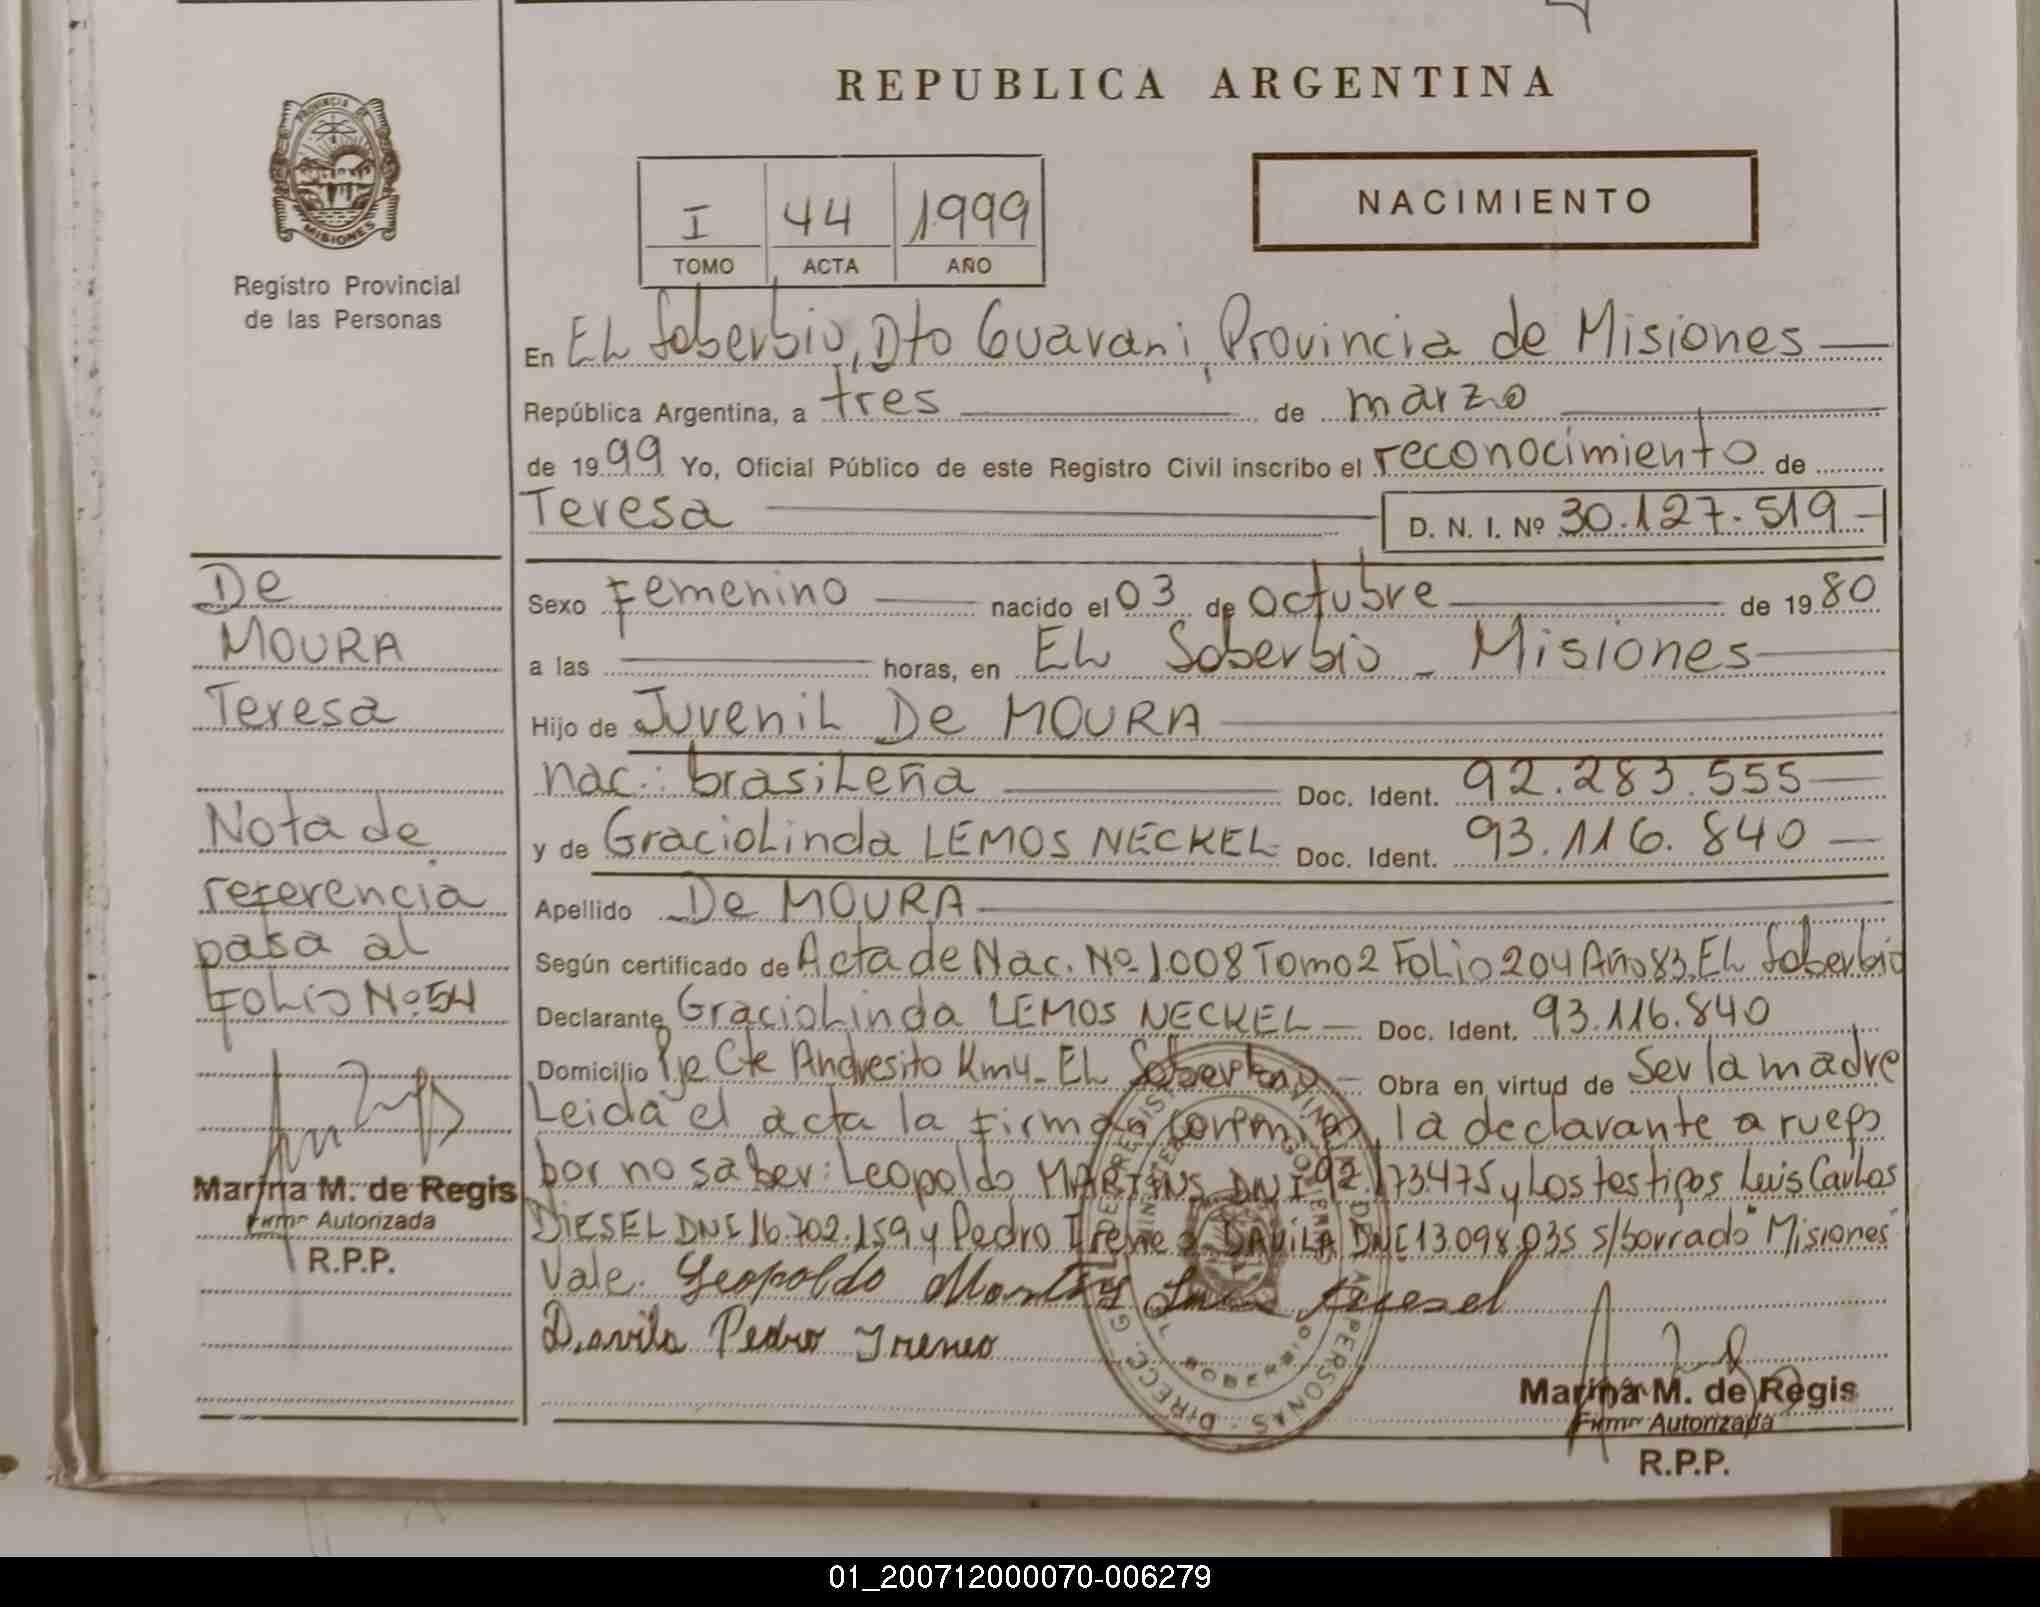 REPUBLICA ARGENTINA
PROVINCIA DE
MISIONES
Registro Provincial
de las Personas
I 44 1999
TOMO ACTA AÑO
NACIMIENTO
En EL Soberbio, Dto Guarani, Provincia de Misiones
República Argentina, a tres de marzo
de 1999 Yo, Oficial Público de este Registro Civil inscribo el reconocimiento de
Teresa D. N. I. Nº 30.127.519
Sexo Femenino nacido el 03 de Octubre de 1980
a las horas, en EL Soberbio - Misiones
Hijo de Juvenil De MOURA
nac.: brasileña Doc. Ident. 92.283.555
y de Graciolinda LEMOS NECKEL Doc. Ident. 93.116.840
Apellido De MOURA
Según certificado de Acta de Nac. Nº 1.008 Tomo 2 Folio 204 Año 83, EL Soberbio
Declarante Graciolinda LEMOS NECKEL Doc. Ident. 93.116.840
Domicilio Pje Cte Andresito Km4 - EL Soberbio Obra en virtud de Ser la madre
Leida el acta la firman conmigo, la declarante a ruego
por no saber: Leopoldo MARTINS DNI 92.173475 y Los testigos Luis Carlos
DIESEL DNI 16.702.159 y Pedro Ireneo DAVILA DNI 13.098.035 s/borrado "Misiones"
Vale. Leopoldo Martins Luis Diesel
Davila Pedro Ireneo
De
MOURA
Teresa
Nota de
referencia
pasa al
Folio Nº 54
Marina M. de Regis
Firma Autorizada
R.P.P.
Marina M. de Regis
Firma Autorizada
R.P.P.
01_200712000070-006279